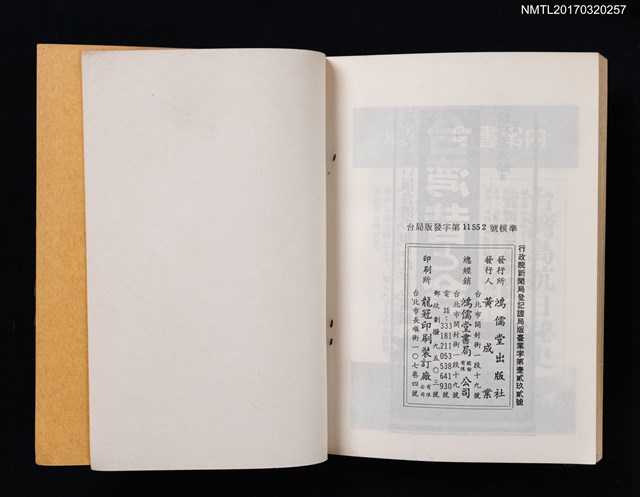 NMTL20170320257
台局版發字第11552號核準
行政院新聞局登記證局版臺業字第壹貳玖貳號
發行所 鴻儒堂出版社
發行人 黃成業
台北市開封街一段十九號
總經銷 鴻儒堂書局股份有限公司
台北市開封街一段十九號
電話:
郵政劃撥
印刷所 龍冠印刷裝訂廠有限公司
台北市長順街一〇七巷四號